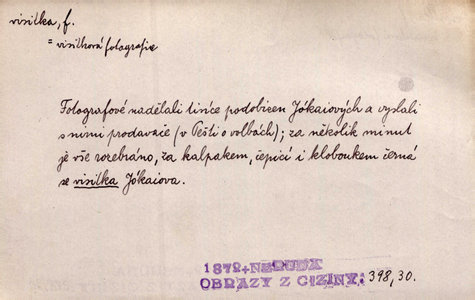 visitka, f.
= visitková fotografie
Fotografové nadělali tisíce podobizen Jókaiových a vyslali
s nimi prodavače (v Pešti o volbách); za několik minut
je vše rozebráno, za kalpakem, čepicí i kloboukem černá
se visitka Jókaiova.
1872+NERUDA
OBRAZY Z CIZINY: 398,30.